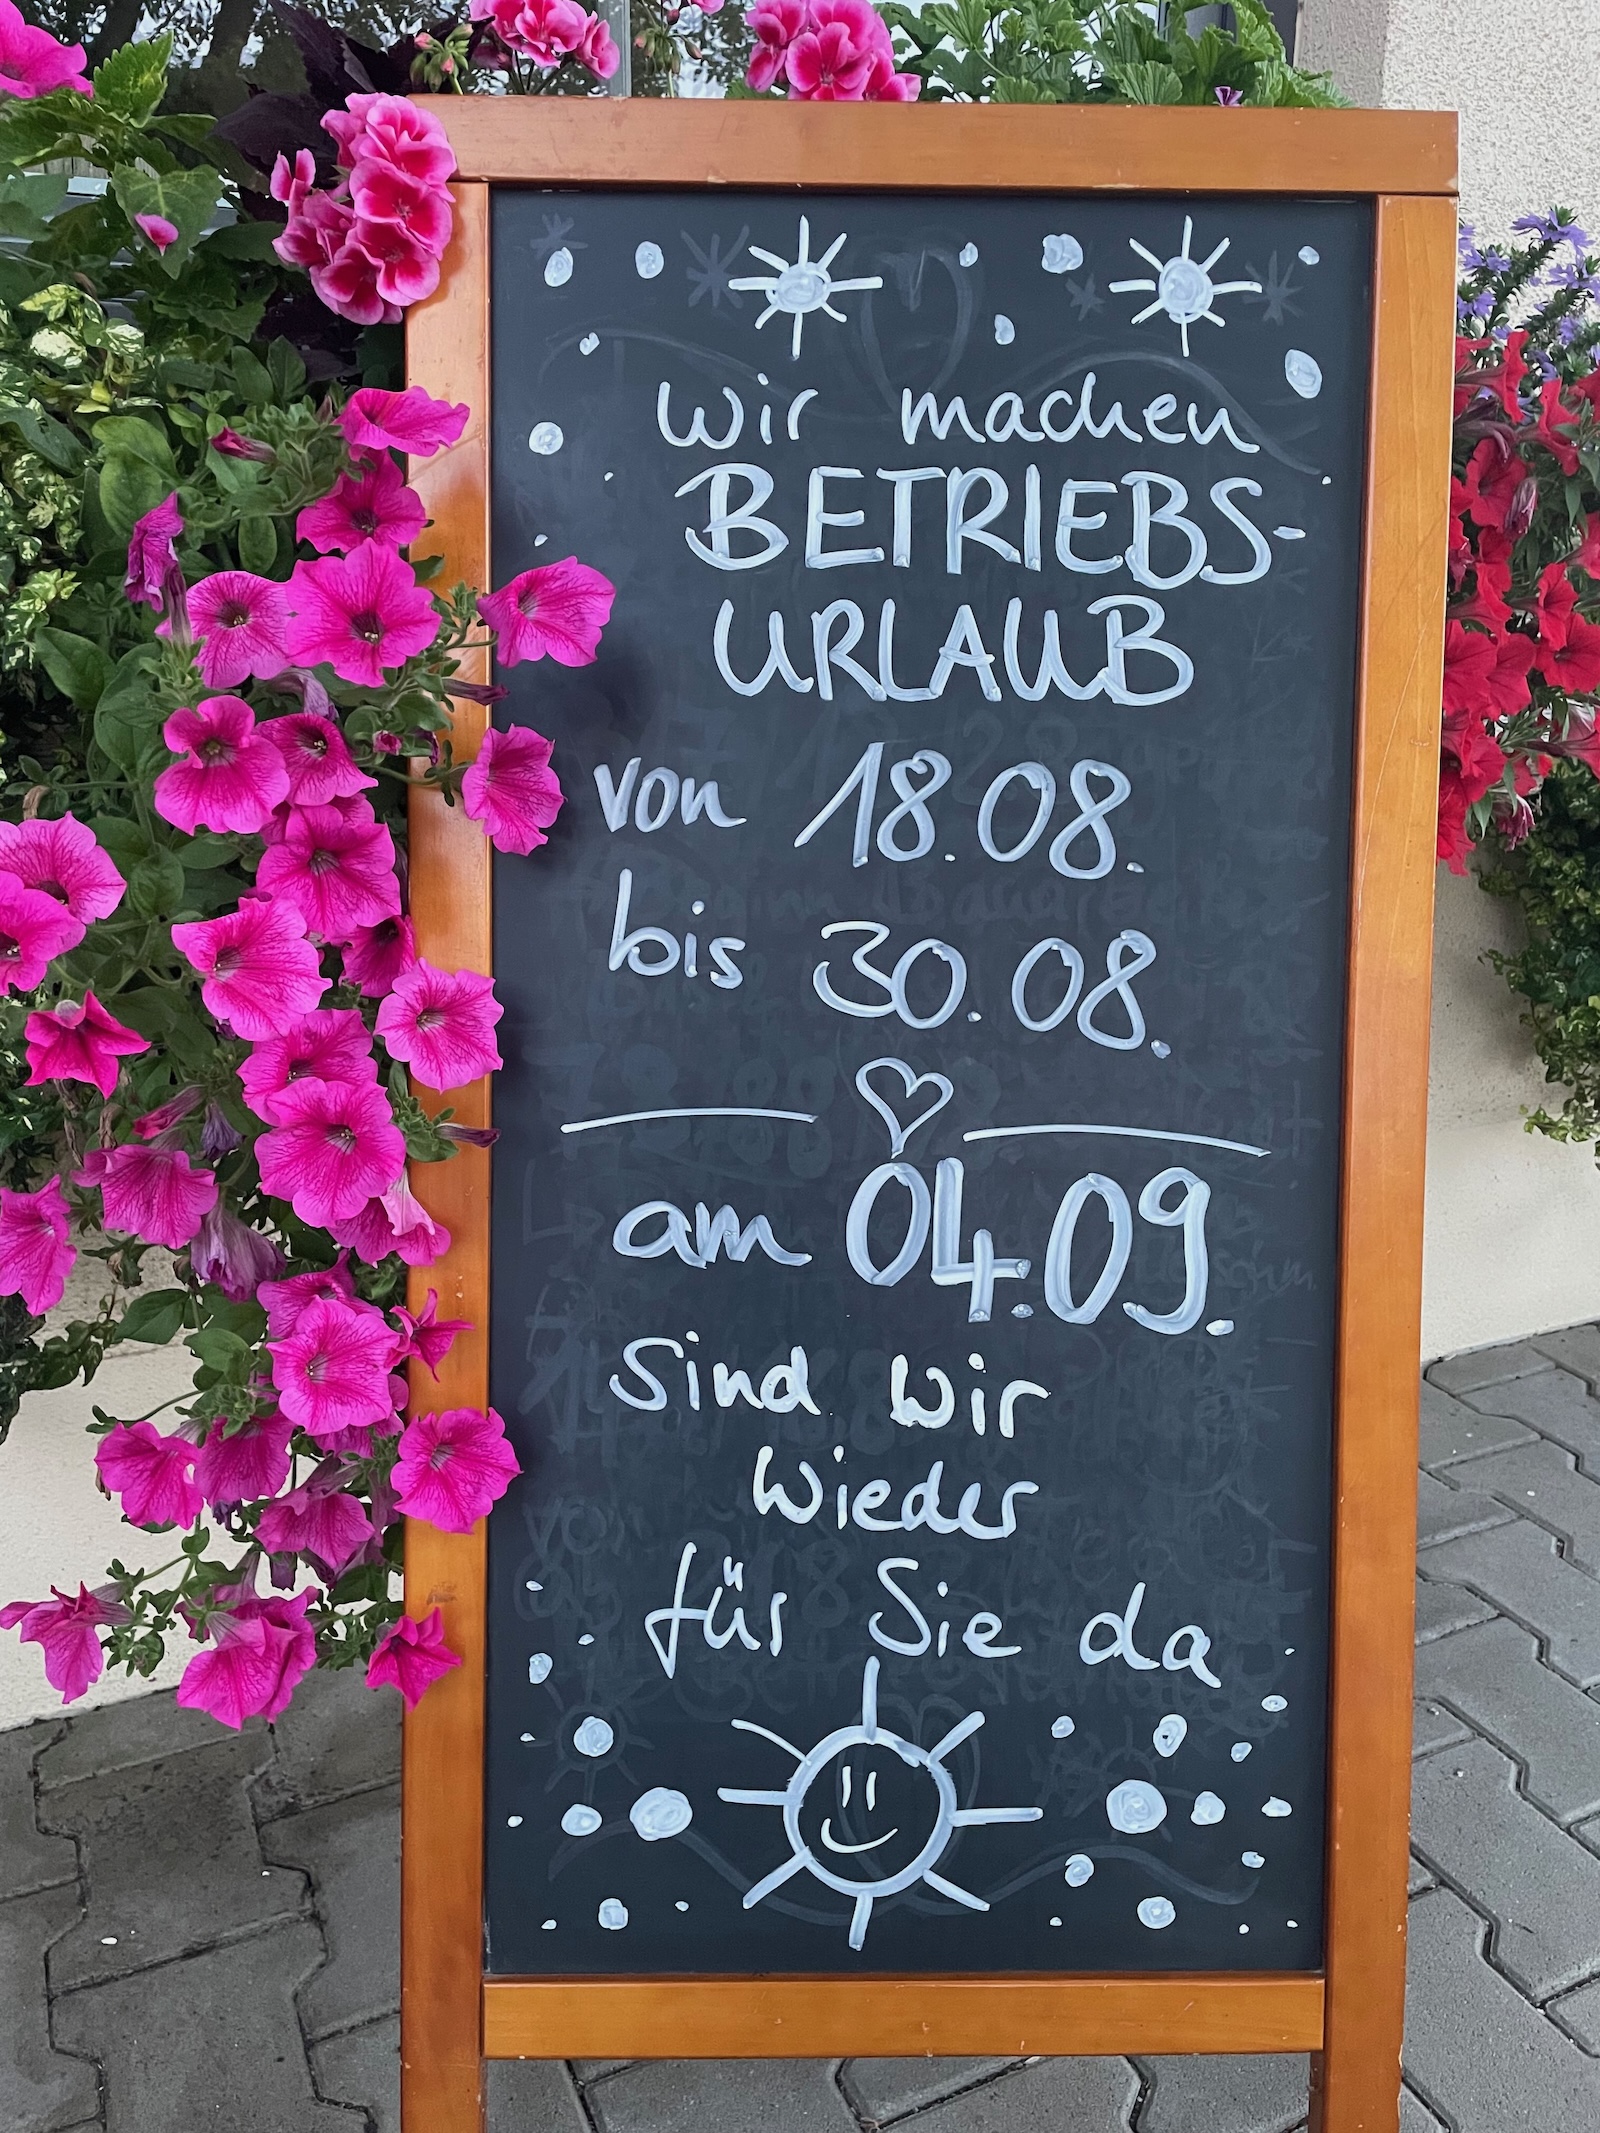 Wir machen
BETRIEBS-
URLAUB
von 18.08.
bis 30.08.
am 04.09.
sind wir
wieder
für Sie da